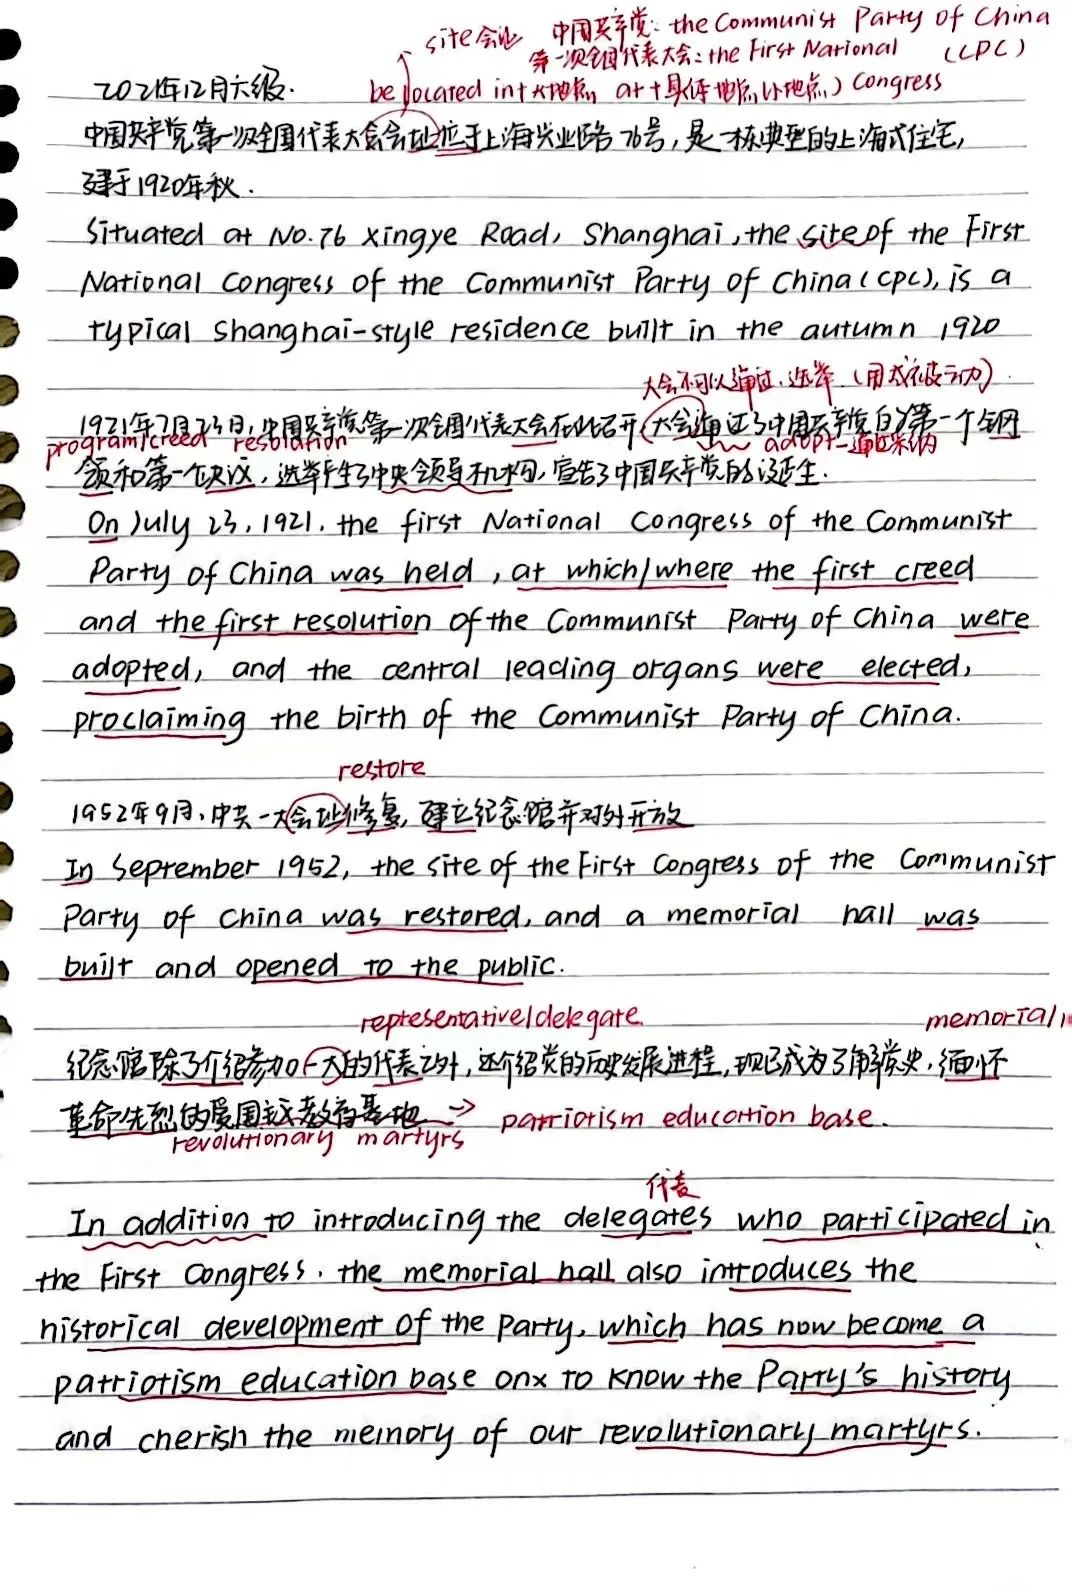 site会址 中国共产党: the Communist Party of China
第一次全国代表大会: the First National (CPC)
2021年12月六级. be located in+大地点 at+具体地点(小地点) Congress
中国共产党第一次全国代表大会会址位于上海兴业路76号,是一栋典型的上海式住宅,
建于1920年秋.
Situated at No.76 Xingye Road, Shanghai, the site of the First
National Congress of the Communist Party of China (CPC), is a
typical Shanghai-style residence built in the autumn 1920
大会不可以通过、选举 (用成被动)
1921年7月23日,中国共产党第一次全国代表大会在此召开,大会通过了中国共产党的第一个纲
program/creed resolution adopt-通过采纳
领和第一个决议,选举产生了中央领导机构,宣告了中国共产党的诞生.
On July 23, 1921, the first National Congress of the Communist
Party of China was held, at which/where the first creed
and the first resolution of the Communist Party of China were
adopted, and the central leading organs were elected,
proclaiming the birth of the Communist Party of China.
restore
1952年9月,中共一大会址修复,建立纪念馆并对外开放
In September 1952, the site of the First Congress of the Communist
Party of China was restored, and a memorial hall was
built and opened to the public.
representative/delegate memorial
纪念馆除了介绍参加一大的代表之外,还介绍党的历史发展进程,现已成为了解党史,缅怀
革命先烈的爱国主义教育基地 → patriotism education base.
revolutionary martyrs
代表
In addition to introducing the delegates who participated in
the First Congress, the memorial hall also introduces the
historical development of the Party, which has now become a
patriotism education base to know the Party's history
and cherish the memory of our revolutionary martyrs.